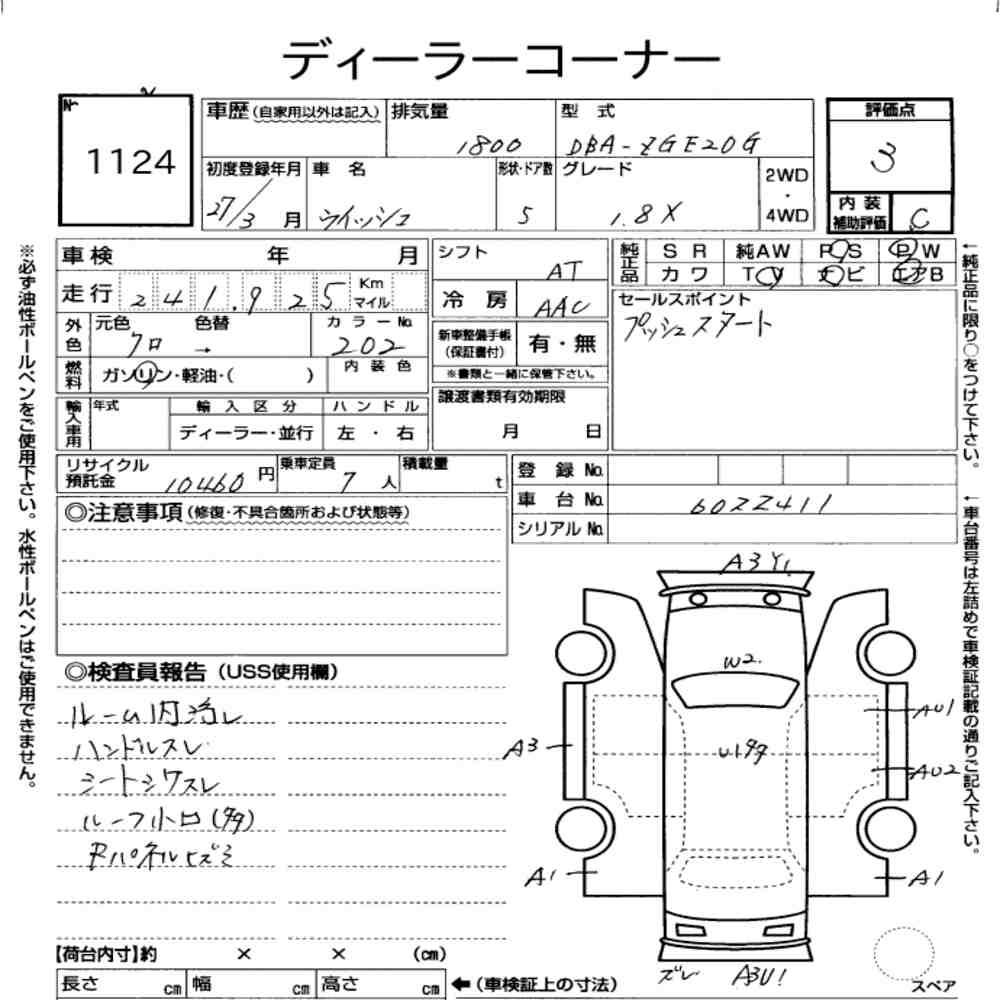 ディーラーコーナー
№
1124
車歴(自家用以外は記入)
排気量
1800
型式
DBA-ZGE20G
評価点
3
初度登録年月
27/3月
車名
ウイッシュ
形状・ドア数
5
グレード
1.8X
2WD
・
4WD
内装
補助評価
C
車検 年 月
走行 241,925 Km
マイル
シフト
AT
冷房
AAC
純正品
SR 純AW PS PW
カワ TV ナビ エアB
セールスポイント
プッシュスタート
外色
元色 色替
クロ →
カラーNo.
202
新車整備手帳
(保証書付)
有・無
※書類と一緒に保管下さい。
燃料
ガソリン・軽油・( )
内装色
輸入車用
年式
輸入区分
ディーラー・並行
ハンドル
左・右
譲渡書類有効期限
月 日
リサイクル
預託金
10460円
乗車定員
7人
積載量
t
登録No.
車台No.
6022411
シリアルNo.
◎注意事項(修復・不具合箇所および状態等)
◎検査員報告(USS使用欄)
ルーム内汚レ
ハンドルスレ
シートシワスレ
ルーフ小ロ(多)
Rパネルヒズミ
A3 Y1
W2
U1多
A3
AU1
AU2
A1
A1
ズレ
A3U1
スペア
【荷台内寸】約 × × (cm)
長さ cm
幅 cm
高さ cm
←(車検証上の寸法)
※必ず油性ボールペンをご使用下さい。水性ボールペンはご使用できません。
←純正品に限り○をつけて下さい。
←車台番号は左詰めで車検証記載の通りご記入下さい。